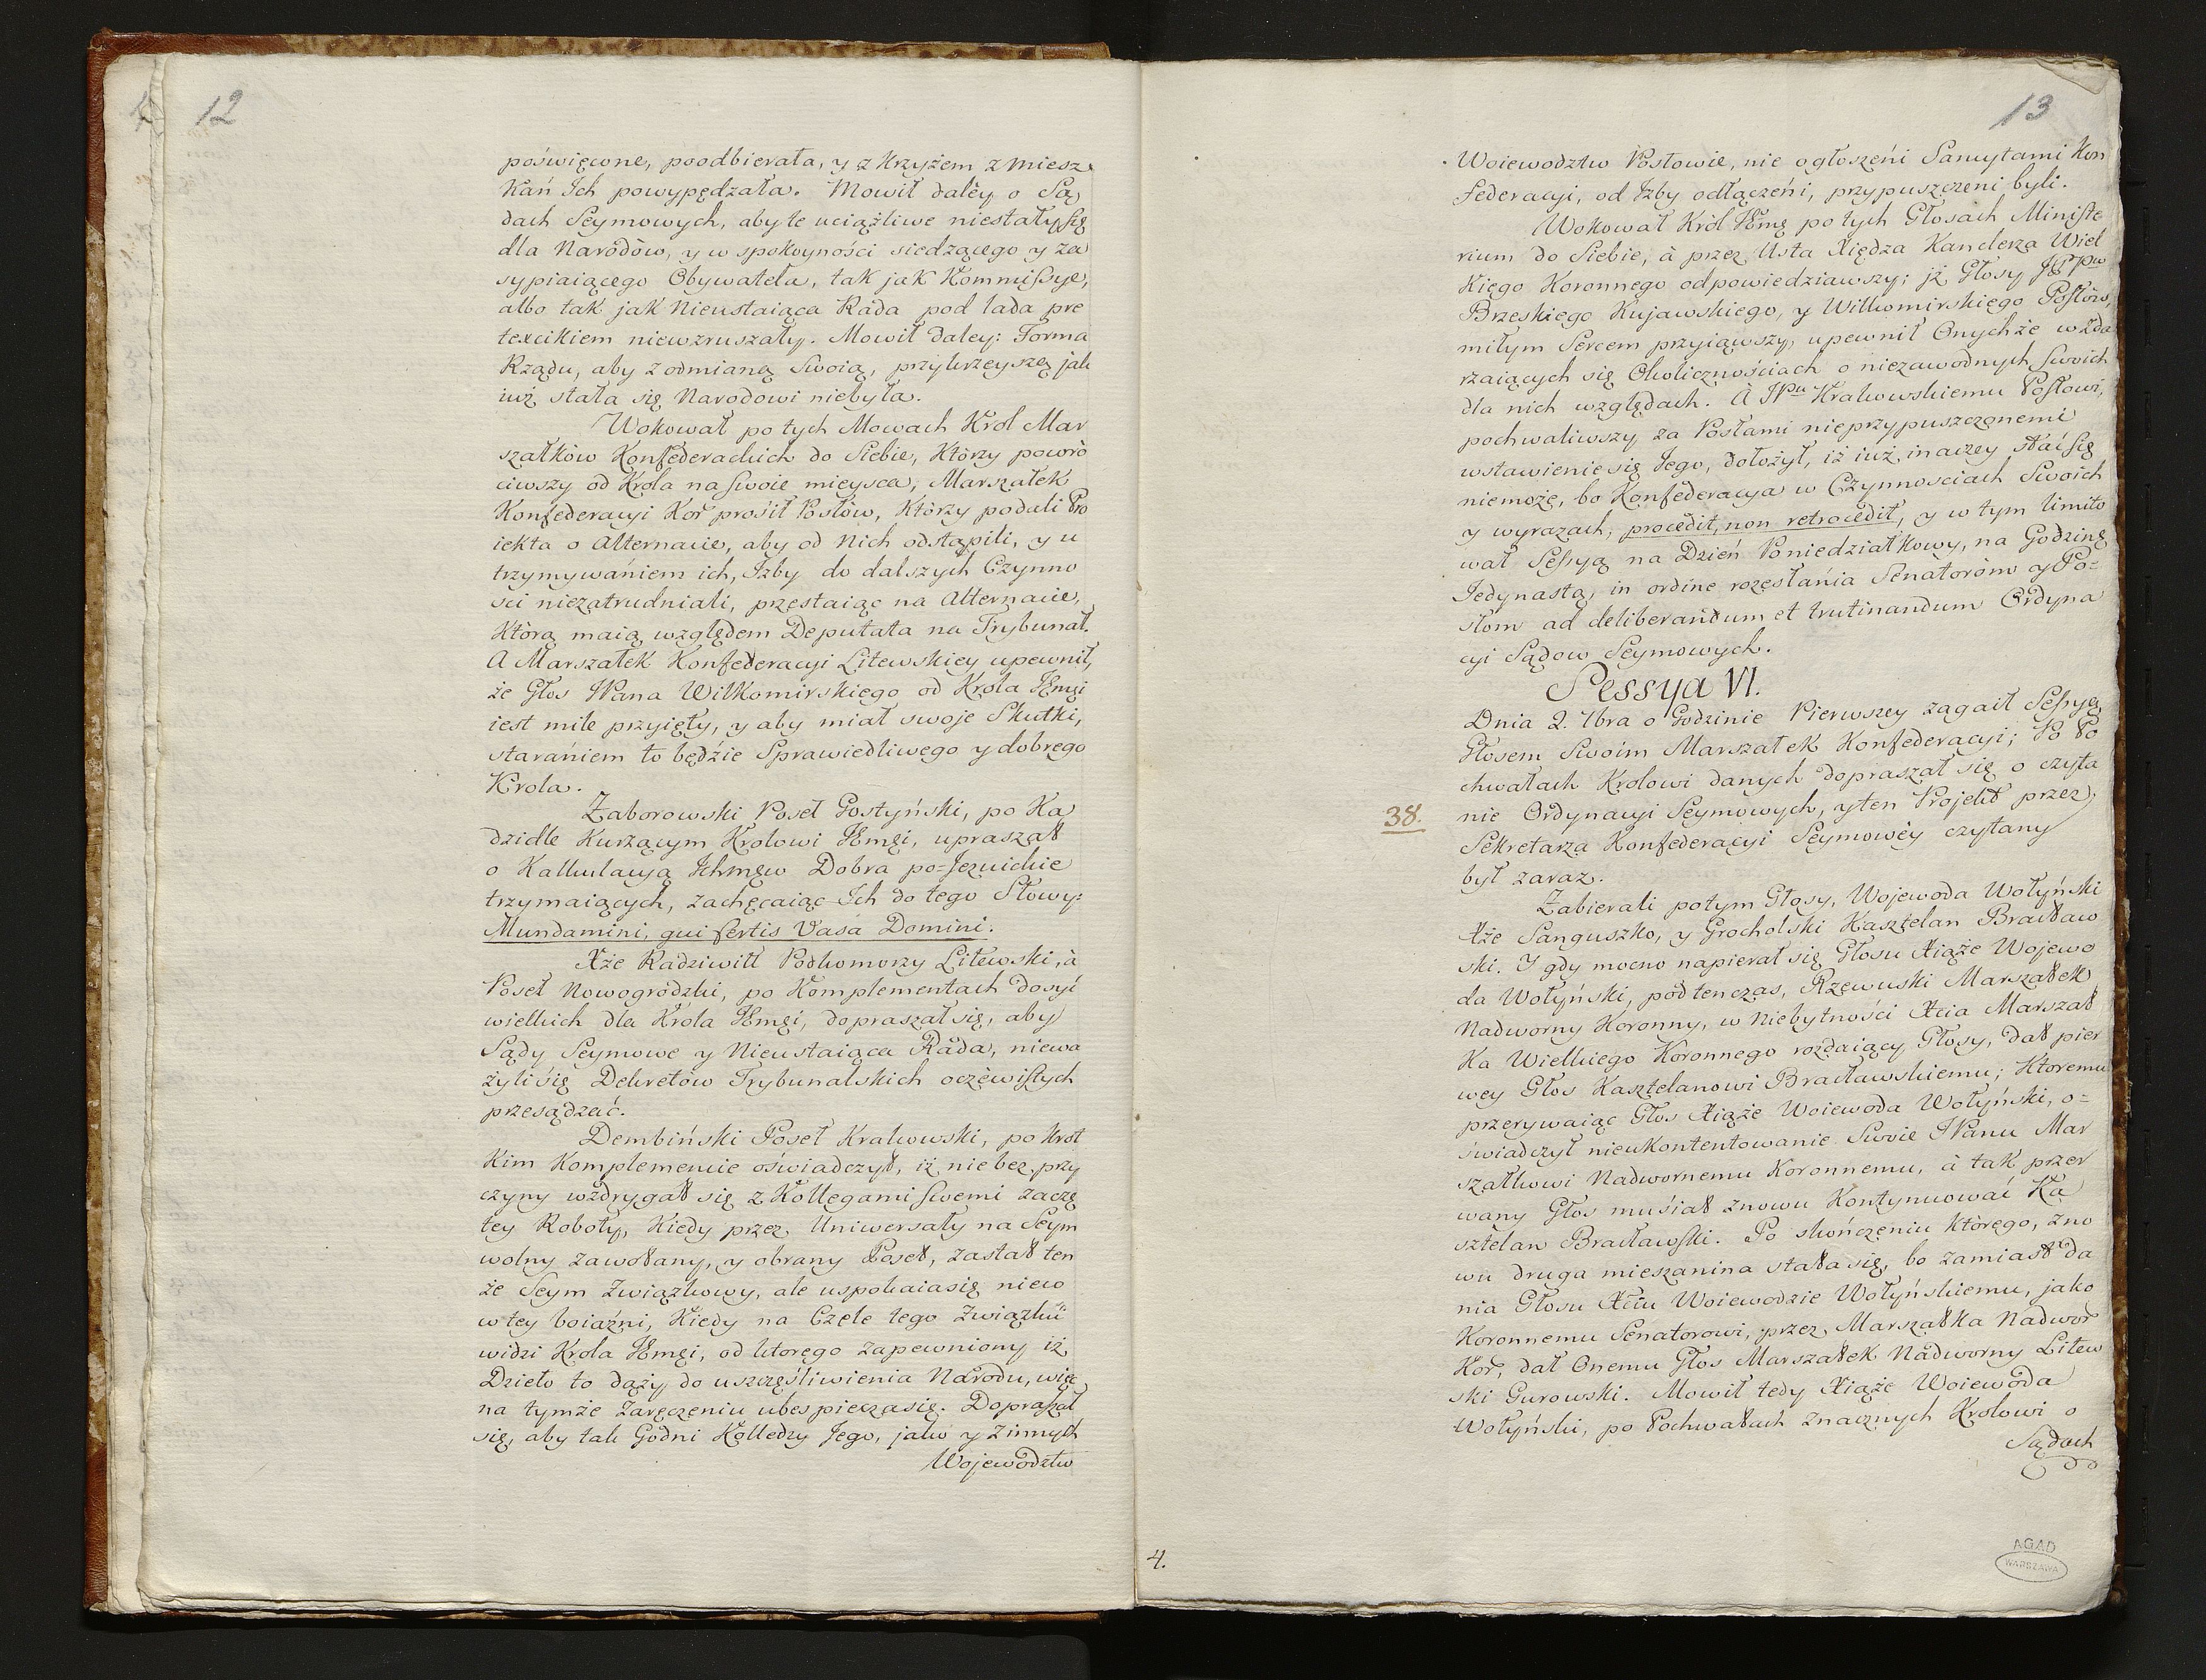 12
poświęcone, poodbierała, y z Krzyżem z Miesz
kań Ich powypędzała. Mowił daléy o Są
dach Seymowych, aby te uciążliwe niestały się
dla Narodòw, y w spokoyności siedzącego y za
sypiaiącego Obywatela, tak jak Kommissye,
albo tak jak Nieustaiąca Rada pod lada pre
texcikiem niewzruszały. Mowił daley: Forma
Rządu, aby z odmianą Swoią, przykrzeyszą jak
iuż stała się Narodowi niebyła.
Wokował po tych Mowach Krol Mar
szałków Konfederackich do Siebie, Którzy powró
ciwszy od Krola na Swoie mieysca, Marszałek
Konfederacyi Kor̃ prosił Posłów, Którzy podali Pro
iekta o Alternacie, aby od Nich odstąpili, y u
trzymywaniem ich, Izby do dalszych Czynno
ści niezatrudniali, przestaiąc na Alternacie,
Którą maią względem Deputata na Trybunał.
A Marszałek Konfederacyi Litewskiey upewnił,
że Głos JPana Wiłkomirskiego od Krola Jmci
iest mile przyięty, y aby miał swoje Skutki,
staraniem to będzie Sprawiedliwego y dobrego
Krola.
Zaborowski Poseł Gostyński, po Ka
dzidle Kurzącym Krolowi Jmci, upraszał
o Kalkulacyą Ichmćiw Dobra po=Jezuickie
trzymaiących, zachęcaiąc Ich do tego Słowy:
Mundamini, qui fertis Vasa Domini.
Xże Radziwiłł Podkomorzy Litewski, à
Poseł Nowogródzki, po Komplementach dosyć
wielkich dla Krola Jmci, dopraszał się, aby
Sądy Seymowe y Nieustaiąca Rada, niewa
żyli się Dekretów Trybunalskich oczewistych
przesądzać.
Dembiński Poseł Krakowski, po Krot
Kim Komplemencie oświadczył, iż nie bez przy
czyny wzdrygał się z Kollegami swemi zaczę
tey Roboty, Kiedy przez Uniwersały na Seym
wolny zawołany, y obrany Poseł, zastał ten
że Seym Związkowy, ale uspokaia się nieco
w tey boiaźni, Kiedy na Czele tego Związku
widzi Krola Jmci, od ktorego zapewniony iż
Dzieło to dąży do uszczęśliwienia Narodu, więc
na tymże Zaręczeniu ubespiecza się. Dopraszał
się, aby tak Godni Kolledzy Jego, jako y z innych
Wojewodztw
13
Woiewodztw Posłowie, nie ogłoszeni Sancytami Kon
federacyi, od Izby odłączeni, przypuszczeni byli.
Wokował Król Jmć po tych Głosach Ministe
rium do Siebie, à przez Usta Xiędza Kanclerza Wiel
kiego Koronnego odpowiedziawszy; iż Głosy JPPów
Brzeskiego Kujawskiego, y Wiłkomirskiego Posłów,
miłym Sercem przyiąwszy, upewnił Onychże w zda
rzaiących się Okolicznościach o niezawodnych Swoich
dla nich względach. À JPu Krakowskiemu Posłowi,
pochwaliwszy za Posłami nieprzypuszczonemi
wstawienie się Jego, dołożył, iż iuż inaczey stać się
niemoże, bo Konfederacya w Czynnościach Swoich
y wyrazach, procedit, non retrocedit, y w tym limito
wał Sessyą na Dzień Poniedziałkowy, na Godzinę
Jedynastą, in ordine rozesłania Senatoròm y Po=
słom ad deliberandum et trutinandum Ordyna
cyi Sądow Seymowych.
Sessya VI.
Dnia 2. 7bra o Godzinie Pierwszey zagaił Sessyą
Głosem Swoim Marszałek Konfederacyi; Po Po
chwałach Krolowi danych dopraszał się o czyta
38.
nie Ordynacyi Seymowych, y ten Projekt przez
Sekretarza Konfederacyi Seymowéy czytany
był zaraz.
Zabierali potym Głosy, Wojewoda Wołyński
Xże Sanguszko, y Grocholski Kasztelan Bracław
ski. Y gdy mocno napierał się Głosu Xiąże Wojewo
da Wołyński, pod tenczas, Rzewuski Marszałek
Nadworny Koronny, w Niebytności Xcia Marszał
ka Wielkiego Koronnego rozdaiący Głosy, dał pier
wey Głos Kasztelanowi Bracławskiemu; Ktoremu
przerywaiąc Głos Xiąże Woiewoda Wołyński, o=
świadczył nieukontentowanie Swoie JPanu Mar
szałkowi Nadwornemu Koronnemu, à tak przer
wany Głos musiał znowu Kontynuować Ka
sztelan Bracławski. Po skończeniu którego, zno
wu druga mieszanina stała się, bo zamiast da
nia Głosu Xciu Woiewodzie Wołyńskiemu, jako
Koronnemu Senatorowi, przez Marszałka Nadwor̃
Kor̃, dał Onemu Głos Marszałek Nadworny Litew
ski Gurowski. Mowił tedy Xiąże Woiewoda
Wołyński, po Pochwałach znacznych Krolowi o
Sądach
4.
AGAD
WARSZAWA